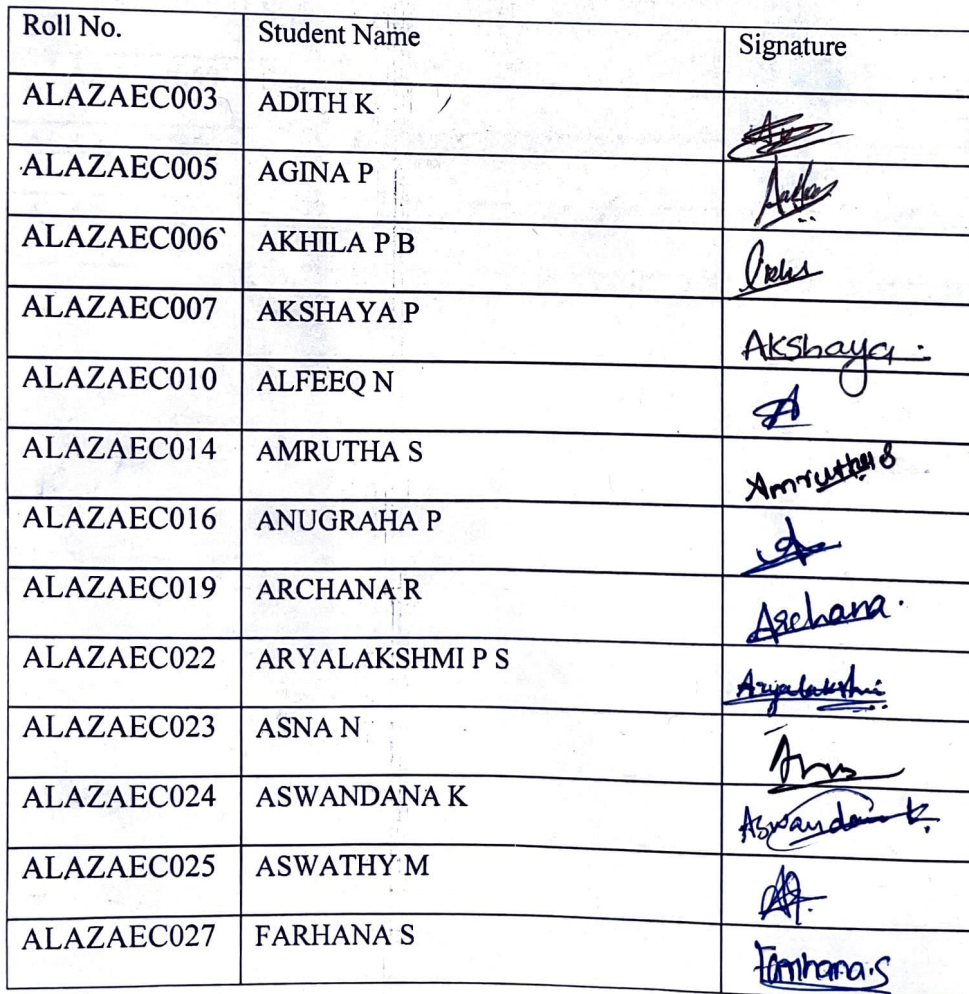 Roll No. Student Name Signature
ALAZAEC003 ADITH K
ALAZAEC005 AGINA P
ALAZAEC006` AKHILA P B
ALAZAEC007 AKSHAYA P Akshaya
ALAZAEC010 ALFEEQ N A
ALAZAEC014 AMRUTHA S Amrutha S
ALAZAEC016 ANUGRAHA P A
ALAZAEC019 ARCHANA R Archana.
ALAZAEC022 ARYALAKSHMI P S Aryalakshmi
ALAZAEC023 ASNA N
ALAZAEC024 ASWANDANA K Aswandana K.
ALAZAEC025 ASWATHY M
ALAZAEC027 FARHANA S Farhana.S